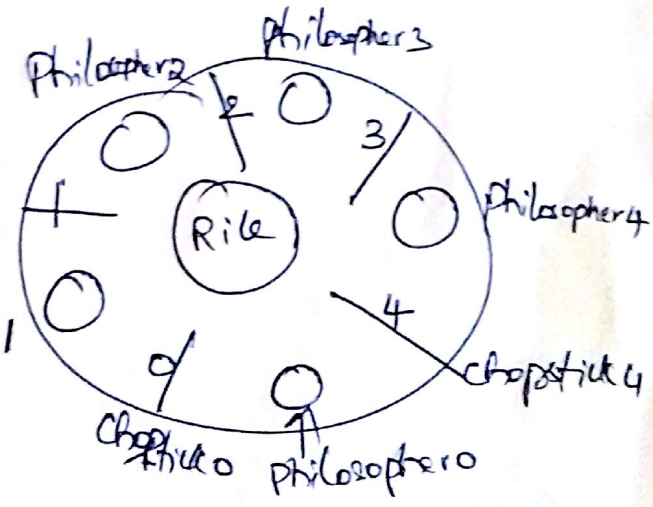 Philosopher3
Philosopher2
2
3
1
Rice
Philosopher4
4
1
0
Chopstick4
Chop
stick0
Philosopher0